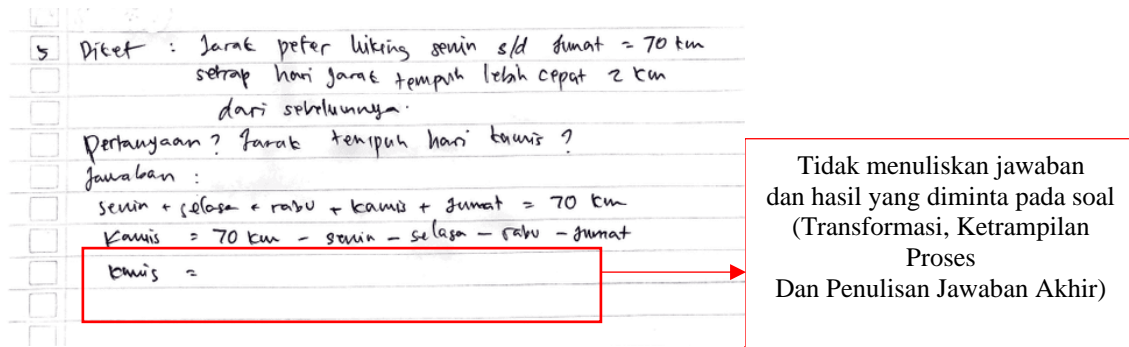 5 Diket : Jarak peter hiking senin s/d Jumat = 70 km
setiap hari jarak tempuh lebih cepat 2 km
dari sebelumnya.
Pertanyaan? Jarak tempuh hari kamis ?
Jawaban :
senin + selasa + rabu + kamis + Jumat = 70 km
Kamis = 70 km - senin - selasa - rabu - Jumat
kamis =
Tidak menuliskan jawaban
dan hasil yang diminta pada soal
(Transformasi, Ketrampilan
Proses
Dan Penulisan Jawaban Akhir)